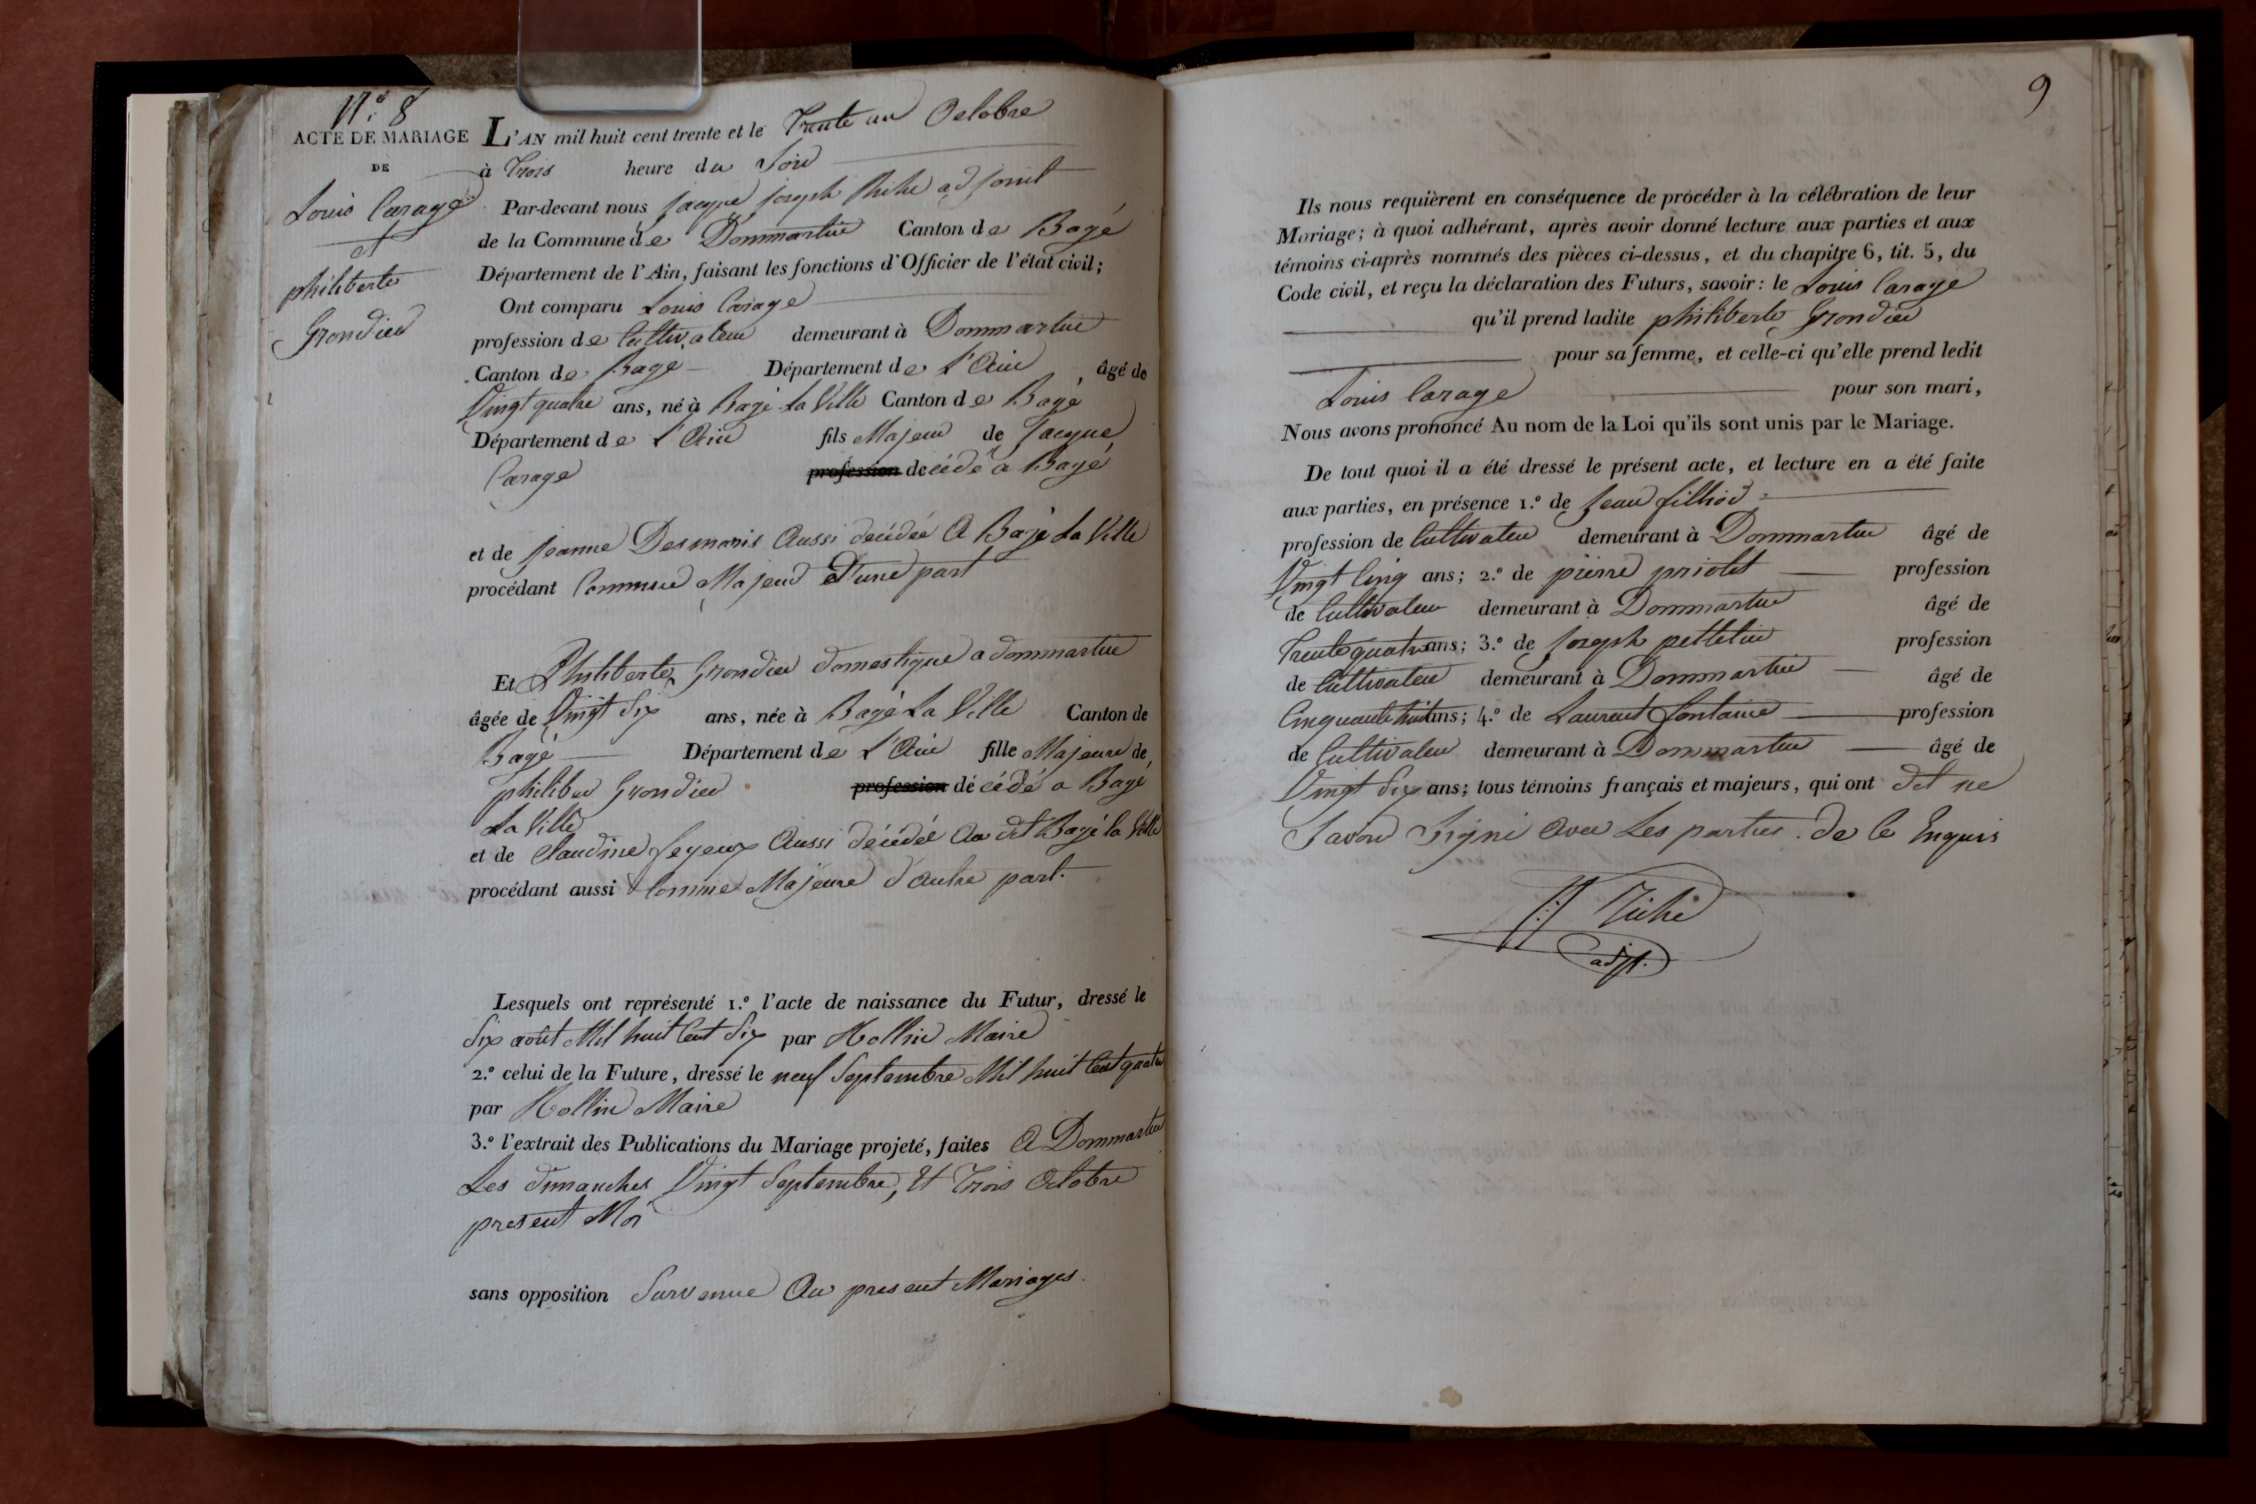 N.° 8
ACTE DE MARIAGE
DE
Louis Carage
et
philiberte
Grondin
L'AN mil huit cent trente et le Trente un Octobre
à Trois heure du Soir
Par-devant nous jacque joseph adjoint
de la Commune de Dommartin Canton de Bagé
Département de l'Ain, faisant les fonctions d'Officier de l'état civil;
Ont comparu Louis Carage
profession de Cultivateur demeurant à Dommartin
Canton de Bagé Département de L'Ain, âgé de
Vingt quatre ans, né à Bagé La Ville Canton de Bagé
Département de L'Ain fils Majeur de Jacque
Carage profession décédé a Bagé
et de jeanne Desmaris Aussi décédée A Bagé La Ville
procédant Comme Majeur D'une part
Et Philiberte Grondin domestique a dommartin
âgée de Vingt Six ans, née à Bagé La Ville Canton de
Bagé Département de L'Ain fille Majeure de
philiber Grondin profession décédé a Bagé
La Ville
et de Claudine Aussi décédée Au dit Bagé la Ville
procédant aussi Comme Majeure d'autre part.
Lesquels ont représenté 1.° l'acte de naissance du Futur, dressé le
Six août Mil huit Cent Six par Hollin Maire
2.° celui de la Future, dressé le neuf Septembre Mil huit Cent quatre
par Hollin Maire
3.° l'extrait des Publications du Mariage projeté, faites A Dommartin
Les dimanches Vingt Septembre, Et Trois Octobre
present Moi
sans opposition Survenue Au present Mariages.
9
Ils nous requièrent en conséquence de procéder à la célébration de leur
Mariage; à quoi adhérant, après avoir donné lecture aux parties et aux
témoins ci-après nommés des pièces ci-dessus, et du chapitre 6, tit. 5, du
Code civil, et reçu la déclaration des Futurs, savoir: le Louis Carage
qu'il prend ladite philiberte Grondin
pour sa femme, et celle-ci qu'elle prend ledit
Louis Carage pour son mari,
Nous avons prononcé Au nom de la Loi qu'ils sont unis par le Mariage.
De tout quoi il a été dressé le présent acte, et lecture en a été faite
aux parties, en présence 1.° de Jean filliod
profession de Cultivateur demeurant à Dommartin âgé de
Vingt Cinq ans; 2.° de pierre priolet profession
de Cultivateur demeurant à Dommartin âgé de
Trente quatre ans; 3.° de Joseph pelletin profession
de Cultivateur demeurant à Dommartin âgé de
Cinquante huit ans; 4.° de Laurent fontaine profession
de Cultivateur demeurant à Dommartin âgé de
Vingt Six ans; tous témoins français et majeurs, qui ont dit ne
Savoir Signé avec Les parties. de ce Enquis
adjt.